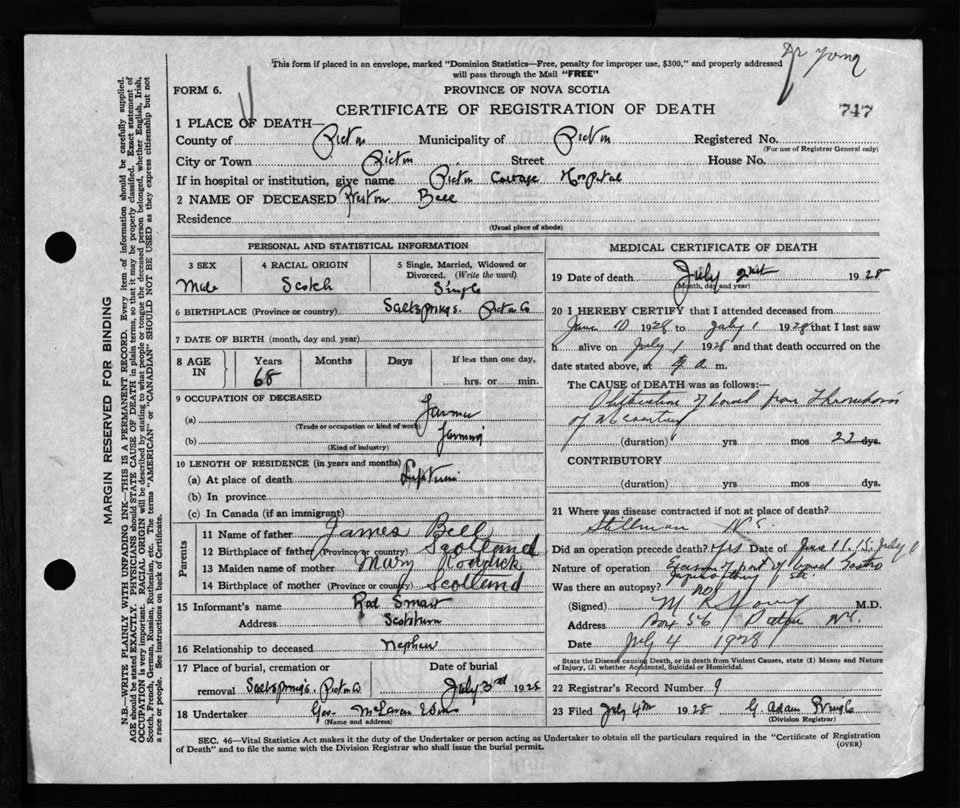 Dr Young
This form if placed in an envelope, marked "Dominion Statistics—Free, penalty for improper use, $300," and properly addressed
will pass through the Mail "FREE"
FORM 6.
PROVINCE OF NOVA SCOTIA
CERTIFICATE OF REGISTRATION OF DEATH
747
1 PLACE OF DEATH—
County of Pictou Municipality of Pictou Registered No.
(For use of Registrar General only)
City or Town Pictou Street House No.
If in hospital or institution, give name Pictou Cottage Hospital
2 NAME OF DECEASED Preston Bell
Residence
(Usual place of abode)
MARGIN RESERVED FOR BINDING
N.B.—WRITE PLAINLY WITH UNFADING INK—THIS IS A PERMANENT RECORD. Every item of information should be carefully supplied.
AGE should be stated EXACTLY. PHYSICIANS should STATE CAUSE OF DEATH in plain terms, so that it may be properly classified. Exact statement of
OCCUPATION is very important. RACIAL ORIGIN will be described by stating to what people or tongue the deceased person belonged, whether English, Irish,
Scotch, French, German, Russian, Ruthenian, etc. The terms "AMERICAN" or "CANADIAN" SHOULD NOT BE USED as they express citizenship but not
a race or people. See instructions on back of Certificate.
PERSONAL AND STATISTICAL INFORMATION
3 SEX
Male
4 RACIAL ORIGIN
Scotch
5 Single, Married, Widowed or
Divorced. (Write the word)
Single
6 BIRTHPLACE (Province or country) Saltsprings. Pictou Co
7 DATE OF BIRTH (month, day and year)
8 AGE
IN
Years
68
Months
Days
If less than one day,
hrs. or min.
9 OCCUPATION OF DECEASED
(a) Farmer
(Trade or occupation or kind of work)
(b) Farming
(Kind of industry)
10 LENGTH OF RESIDENCE (in years and months)
(a) At place of death Lifetime
(b) In province
(c) In Canada (if an immigrant)
Parents
11 Name of father James Bell
12 Birthplace of father (Province or country) Scotland
13 Maiden name of mother Mary Roddick
14 Birthplace of mother (Province or country) Scotland
15 Informant's name Rod Smart
Address Scotsburn
16 Relationship to deceased nephew
17 Place of burial, cremation or
removal Saltsprings. Pictou Co.
Date of burial
July 3rd 1928
18 Undertaker Geo. McLaren
(Name and address)
MEDICAL CERTIFICATE OF DEATH
19 Date of death July 1928
(Month, day and year)
20 I HEREBY CERTIFY that I attended deceased from
June 10 1928 to July 1 1928 that I last saw
h alive on July 1 1928 and that death occurred on
date stated above, at a m.
The CAUSE of DEATH was as follows:—
of bowel from Thrombosis
of
(duration) yrs mos 22 dys.
CONTRIBUTORY
(duration) yrs mos dys.
21 Where was disease contracted if not at place of death?
Stillman N.S.
Did an operation precede death? Yes Date of June 11. 15. July 1
Nature of operation Excision of part of bowel
Was there an autopsy? no
(Signed) M R Young M.D.
Address Box 56 Pictou N.S.
Date July 4 1928
State the Disease causing Death, or in death from Violent Causes, state (1) Means and Nature
of Injury, (2) whether Accidental, Suicidal or Homicidal.
22 Registrar's Record Number 9
23 Filed July 4th 1928 G. Adam
(Division Registrar)
SEC. 46—Vital Statistics Act makes it the duty of the Undertaker or person acting as Undertaker to obtain all the particulars required in the "Certificate of Registration
of Death" and to file the same with the Division Registrar who shall issue the burial permit.
(OVER)